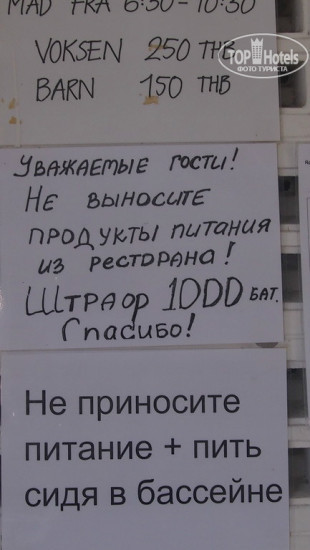 MAD FRA 6:30-10:30
VOKSEN 250 THB
BARN 150 THB
TOP Hotels
ФОТО ТУРИСТА
Уважаемые гости!
Не выносите
продукты питания
из ресторана!
Штраор 1000 бат.
Спасибо!
Не приносите
питание + пить
сидя в бассейне